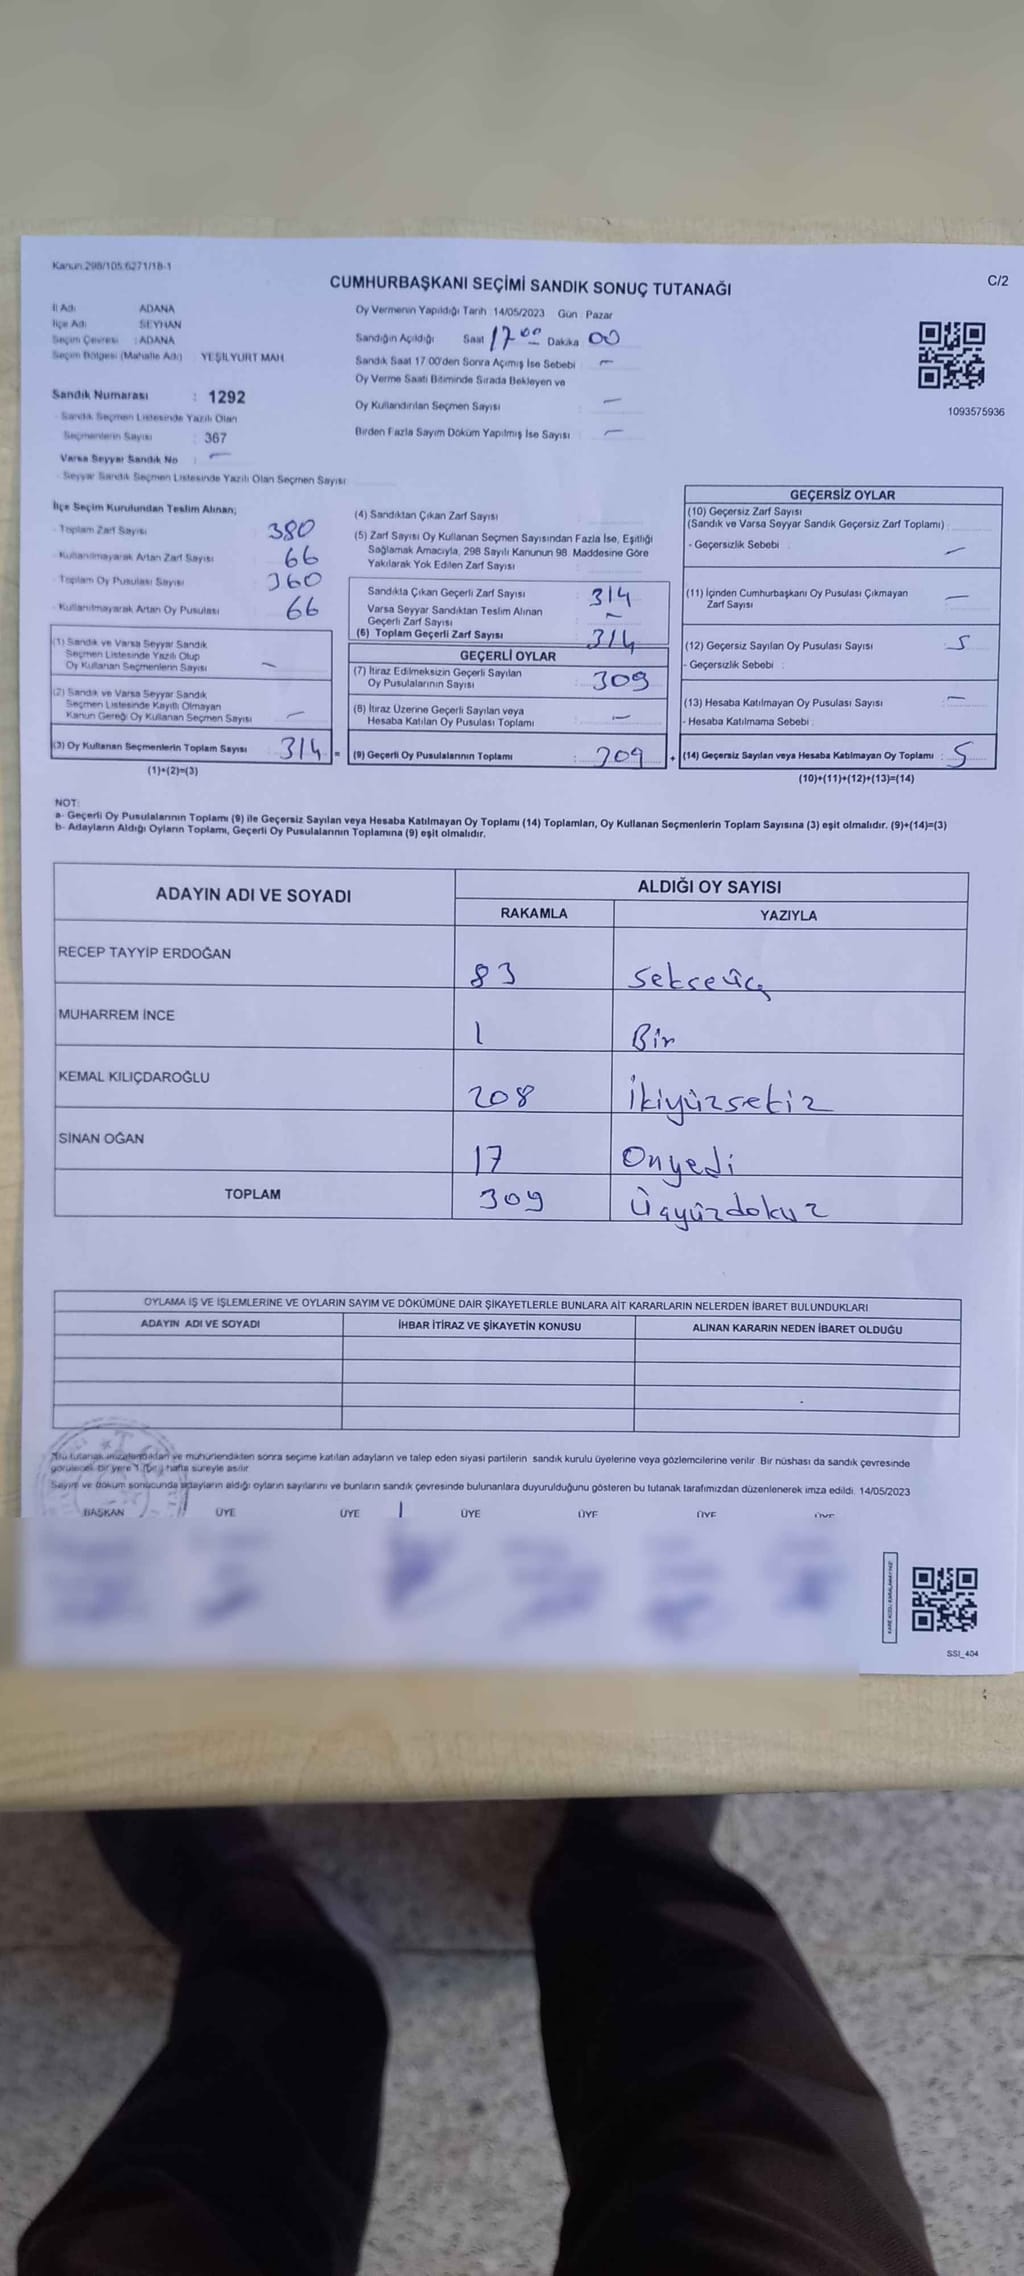 Kanun:298/105:6271/18-1
C/2
CUMHURBAŞKANI SEÇİMİ SANDIK SONUÇ TUTANAĞI
İl Adı : ADANA
İlçe Adı : SEYHAN
Seçim Çevresi : ADANA
Seçim Bölgesi (Mahalle Adı) YEŞİLYURT MAH.
Oy Vermenin Yapıldığı Tarih 14/05/2023 Gün : Pazar
Sandığın Açıldığı Saat 17 00 Dakika 00
Sandık Saat 17:00'den Sonra Açımış İse Sebebi : -
Oy Verme Saati Bitiminde Sırada Bekleyen ve
Oy Kullandırılan Seçmen Sayısı : -
Birden Fazla Sayım Döküm Yapılmış İse Sayısı : -
1093575936
Sandık Numarası : 1292
- Sandık Seçmen Listesinde Yazılı Olan
Seçmenlerin Sayısı : 367
Varsa Seyyar Sandık No : -
- Seyyar Sandık Seçmen Listesinde Yazılı Olan Seçmen Sayısı:
İlçe Seçim Kurulundan Teslim Alınan;
- Toplam Zarf Sayısı 380
- Kullanılmayarak Artan Zarf Sayısı 66
- Toplam Oy Pusulası Sayısı 360
- Kullanılmayarak Artan Oy Pusulası 66
(1) Sandık ve Varsa Seyyar Sandık
Seçmen Listesinde Yazılı Olup
Oy Kullanan Seçmenlerin Sayısı -
(2) Sandık ve Varsa Seyyar Sandık
Seçmen Listesinde Kayıtlı Olmayan
Kanun Gereği Oy Kullanan Seçmen Sayısı -
(3) Oy Kullanan Seçmenlerin Toplam Sayısı 314 =
(1)+(2)=(3)
(4) Sandıktan Çıkan Zarf Sayısı
(5) Zarf Sayısı Oy Kullanan Seçmen Sayısından Fazla İse, Eşitliği
Sağlamak Amacıyla, 298 Sayılı Kanunun 98. Maddesine Göre
Yakılarak Yok Edilen Zarf Sayısı
Sandıkta Çıkan Geçerli Zarf Sayısı : 314
Varsa Seyyar Sandıktan Teslim Alınan
Geçerli Zarf Sayısı : -
(6) Toplam Geçerli Zarf Sayısı : 314
GEÇERLİ OYLAR
(7) İtiraz Edilmeksizin Geçerli Sayılan
Oy Pusulalarının Sayısı : 309
(8) İtiraz Üzerine Geçerli Sayılan veya
Hesaba Katılan Oy Pusulası Toplamı : -
(9) Geçerli Oy Pusulalarının Toplamı : 309 +
GEÇERSİZ OYLAR
(10) Geçersiz Zarf Sayısı
(Sandık ve Varsa Seyyar Sandık Geçersiz Zarf Toplamı) :
- Geçersizlik Sebebi : -
(11) İçinden Cumhurbaşkanı Oy Pusulası Çıkmayan
Zarf Sayısı : -
(12) Geçersiz Sayılan Oy Pusulası Sayısı : 5
- Geçersizlik Sebebi :
(13) Hesaba Katılmayan Oy Pusulası Sayısı : -
- Hesaba Katılmama Sebebi :
(14) Geçersiz Sayılan veya Hesaba Katılmayan Oy Toplamı : 5
(10)+(11)+(12)+(13)=(14)
NOT:
a- Geçerli Oy Pusulalarının Toplamı (9) ile Geçersiz Sayılan veya Hesaba Katılmayan Oy Toplamı (14) Toplamları, Oy Kullanan Seçmenlerin Toplam Sayısına (3) eşit olmalıdır. (9)+(14)=(3)
b- Adayların Aldığı Oyların Toplamı, Geçerli Oy Pusulalarının Toplamına (9) eşit olmalıdır.
ADAYIN ADI VE SOYADI
ALDIĞI OY SAYISI
RAKAMLA YAZIYLA
RECEP TAYYİP ERDOĞAN 83 Seksenüç
MUHARREM İNCE 1 Bir
KEMAL KILIÇDAROĞLU 208 İkiyüzsekiz
SİNAN OĞAN 17 Onyedi
TOPLAM 309 Üçyüzdokuz
OYLAMA İŞ VE İŞLEMLERİNE VE OYLARIN SAYIM VE DÖKÜMÜNE DAİR ŞİKAYETLERLE BUNLARA AİT KARARLARIN NELERDEN İBARET BULUNDUKLARI
ADAYIN ADI VE SOYADI İHBAR İTİRAZ VE ŞİKAYETİN KONUSU ALINAN KARARIN NEDEN İBARET OLDUĞU
Bu tutanak imzalandıktan ve mühürlendikten sonra seçime katılan adayların ve talep eden siyasi partilerin sandık kurulu üyelerine veya gözlemcilerine verilir. Bir nüshası da sandık çevresinde
görülecek bir yere 1 (bir) hafta süreyle asılır.
Sayım ve döküm sonucunda adayların aldığı oyların sayılarını ve bunların sandık çevresinde bulunanlara duyurulduğunu gösteren bu tutanak tarafımızdan düzenlenerek imza edildi. 14/05/2023
BAŞKAN ÜYE ÜYE ÜYE ÜYE ÜYE ÜYE
SSI_404